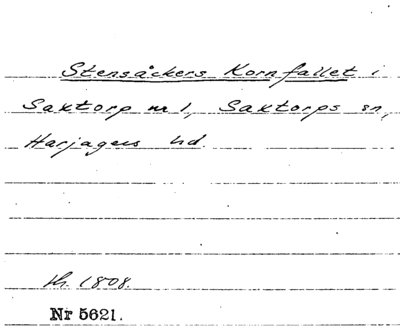 Stensåckers Kornfallet i
Saxtorp nr 1, Saxtorps sn,
Harjagers hd.
th. 1808.
Nr 5621.